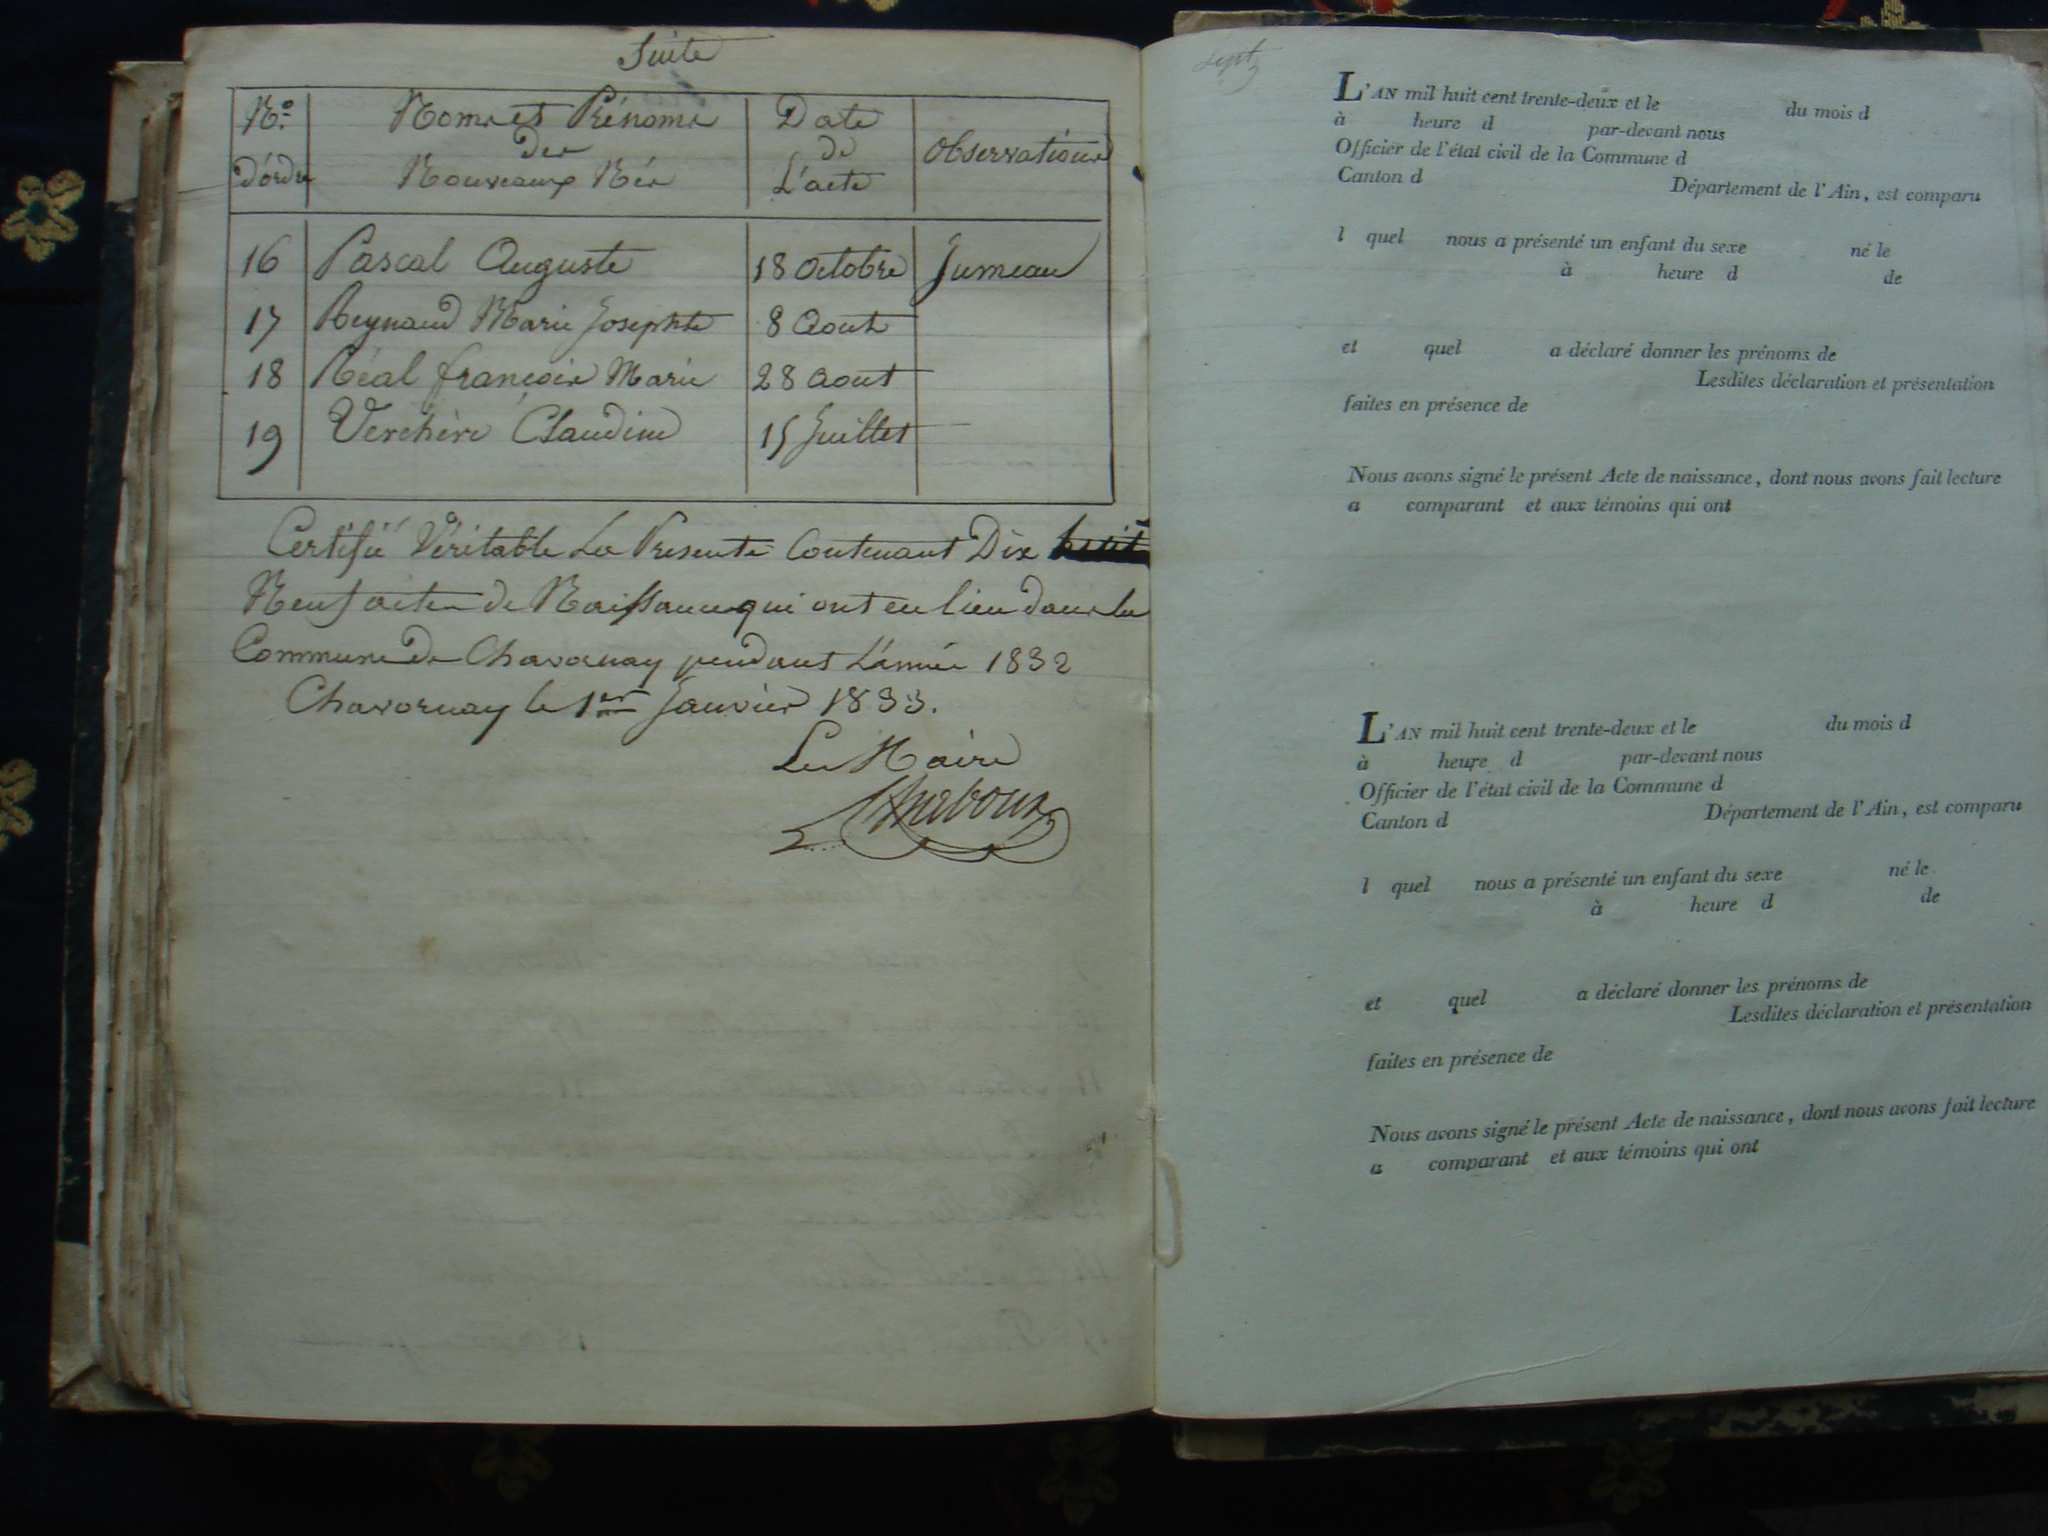 Suite
N.o Noms et Prénoms Date Observations
des de
D'ordre Nouveaux Nés L'acte
16 Pascal Auguste 18 Octobre Jumeau
17 Reynaud Marie Josephte 8 Aout
18 Réal françois Marie 28 Aout
19 Verchère Claudine 15 Juillet
Certifié Véritable La Presente Contenant Dix huit
Neuf actes de Naissance qui ont eu lieu dans la
Commune de Chavornay pendant L'année 1832
Chavornay le 1er Janvier 1833.
Le Maire
Sept
L'AN mil huit cent trente-deux et le du mois d
à heure d par-devant nous
Officier de l'état civil de la Commune d
Canton d Département de l'Ain, est comparu
l quel nous a présenté un enfant du sexe né le
à heure d de
et quel a déclaré donner les prénoms de
Lesdites déclaration et présentation
faites en présence de
Nous avons signé le présent Acte de naissance, dont nous avons fait lecture
a comparant et aux témoins qui ont
L'AN mil huit cent trente-deux et le du mois d
à heure d par-devant nous
Officier de l'état civil de la Commune d
Canton d Département de l'Ain, est comparu
l quel nous a présenté un enfant du sexe né le
à heure d de
et quel a déclaré donner les prénoms de
Lesdites déclaration et présentation
faites en présence de
Nous avons signé le présent Acte de naissance, dont nous avons fait lecture
a comparant et aux témoins qui ont